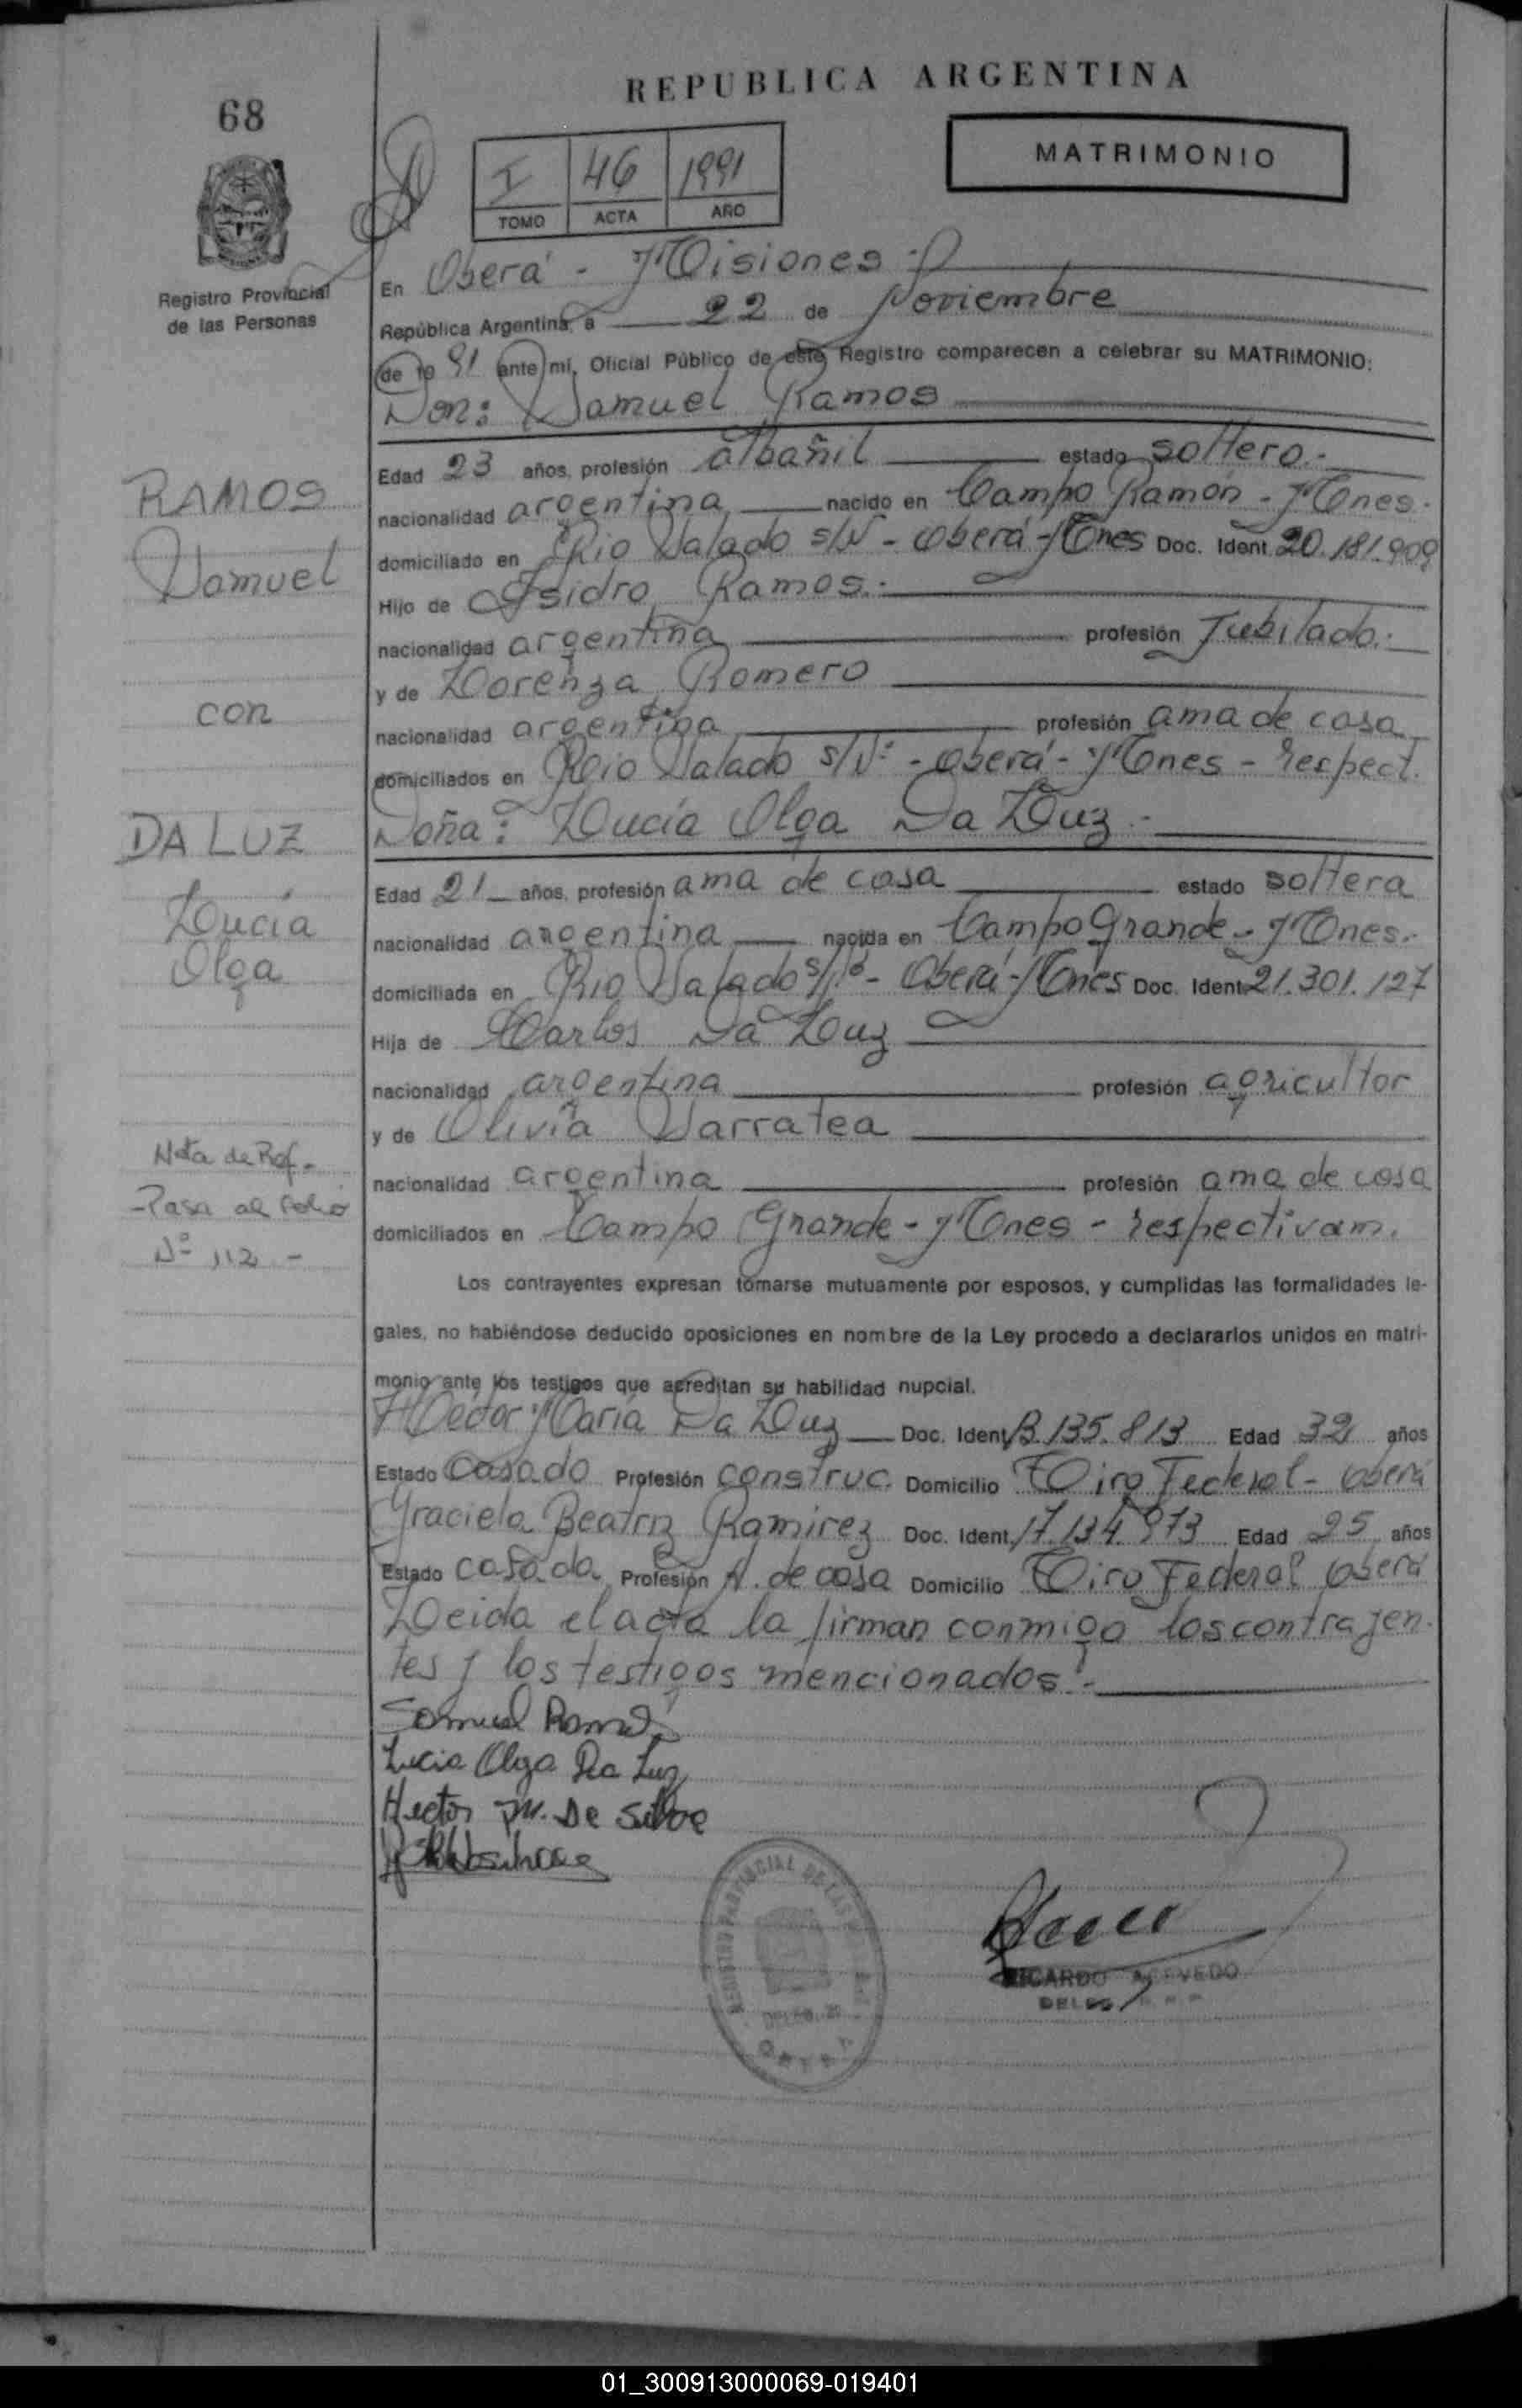 REPUBLICA ARGENTINA
68
MATRIMONIO
I 46 1991
TOMO ACTA AÑO
Registro Provincial
de las Personas
En Oberá - Misiones
República Argentina, a 22 de Noviembre
de 19 91 ante mí, Oficial Público de este Registro comparecen a celebrar su MATRIMONIO:
Don: Samuel Ramos
Edad 23 años, profesión albañil estado soltero.-
nacionalidad argentina nacido en Campo Ramón - Mnes.
domiciliado en Rio Salado s/N - Oberá - Mnes Doc. Ident. 20.181.909
Hijo de Isidro Ramos.
nacionalidad argentina profesión Jubilado.
y de Lorenza Romero
nacionalidad argentina profesión ama de casa
domiciliados en Rio Salado s/Nº - Oberá - Mnes - respect.
Doña: Lucía Olga Da Luz -
Edad 21 años, profesión ama de casa estado soltera
nacionalidad argentina nacida en Campo Grande - Mnes.-
domiciliada en Rio Salado s/Nº - Oberá - Mnes Doc. Ident. 21.301.127
Hija de Carlos Da Luz
nacionalidad argentina profesión agricultor
y de Olivia Sarratea
nacionalidad argentina profesión ama de casa
domiciliados en Campo Grande - Mnes - respectivam.
Los contrayentes expresan tomarse mutuamente por esposos, y cumplidas las formalidades le-
gales, no habiéndose deducido oposiciones en nombre de la Ley procedo a declararlos unidos en matri-
monio ante los testigos que acreditan su habilidad nupcial.
Héctor María Da Luz Doc. Ident. 13.135.813 Edad 32 años
Estado Casado Profesión construc. Domicilio Tiro Federal - Oberá
Graciela Beatriz Ramirez Doc. Ident. 17.134.973 Edad 25 años
Estado casada Profesión A. de casa Domicilio Tiro Federal Oberá
Leida el acta la firman conmigo los contrayen-
tes y los testigos mencionados.-
Samuel Ramos
Lucia Olga Da Luz
Hector M. De
RICARDO ACEVEDO
REGISTRO PROVINCIAL DE LAS
OBERA
RAMOS
Samuel
con
DA LUZ
Lucía
Olga
Nota de Ref.-
-Pasa al folio
Nº 112.-
01_300913000069-019401